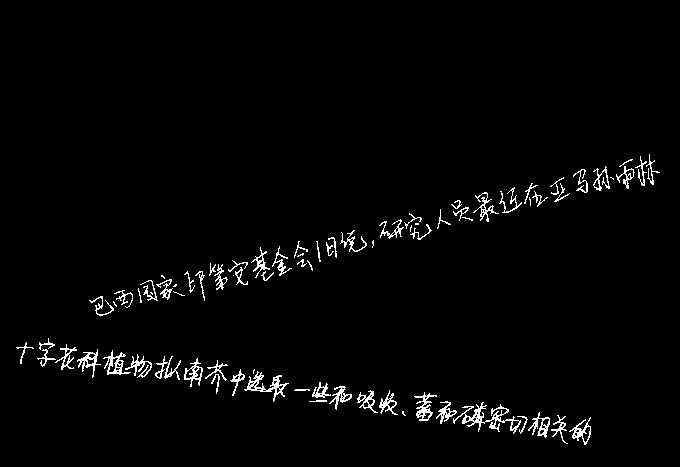 巴西国家印第安基金会1日说,研究人员最近在亚马孙雨林
十字花科植物拟南芥中选取一些和吸收、蓄积磷密切相关的